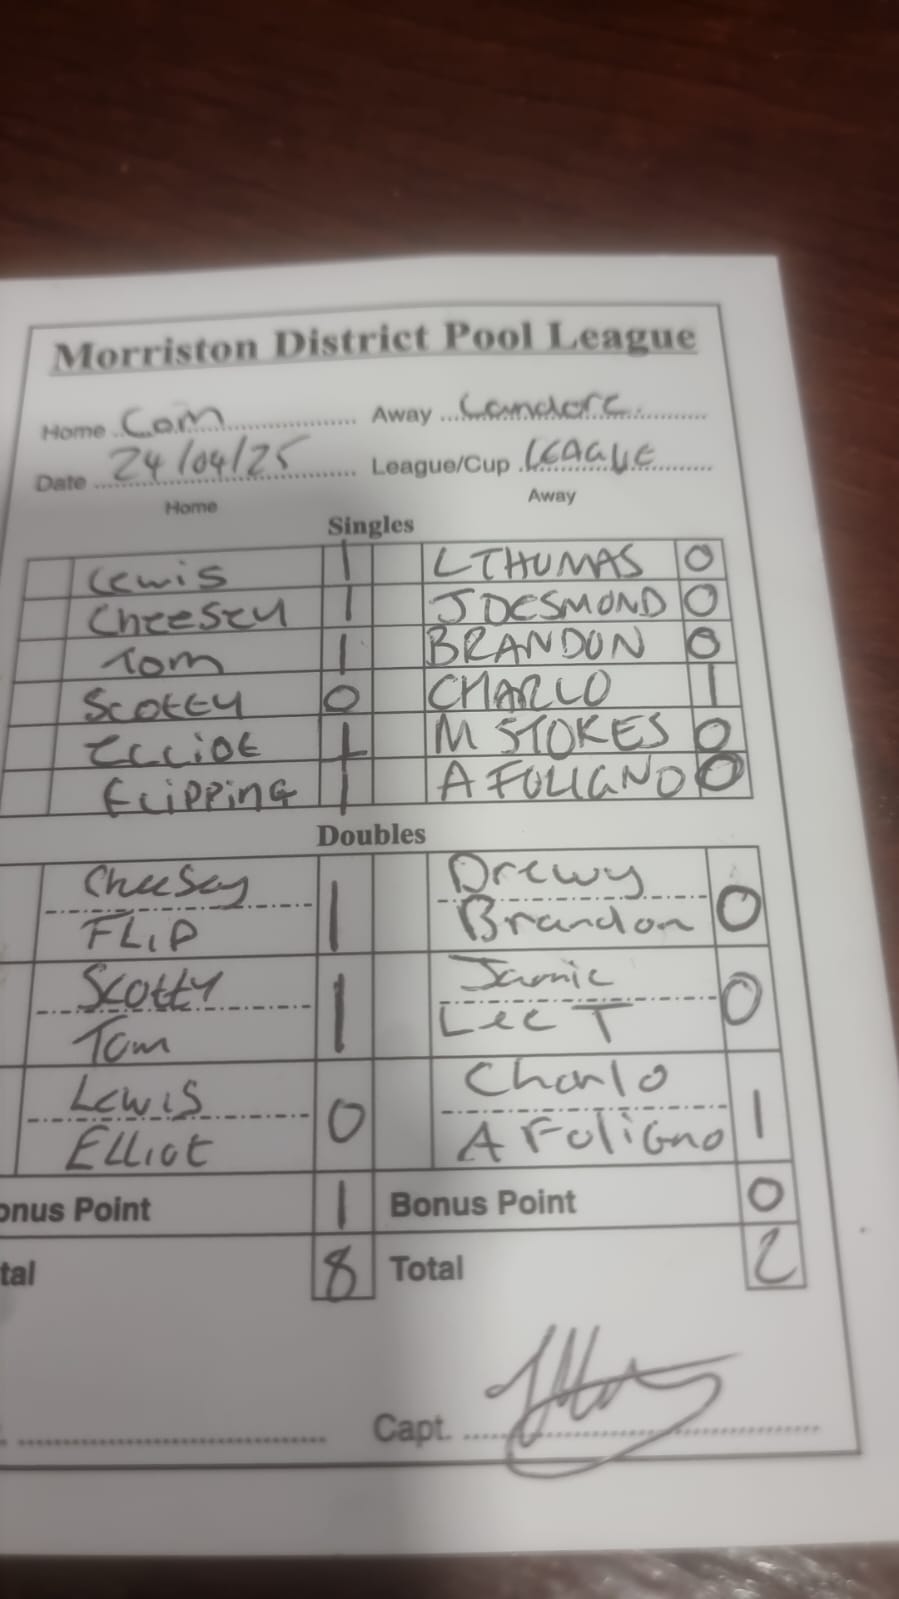 Morriston District Pool League
Home Com Away Landore
Date 24/04/25 League/Cup LEAGUE
Home Away
Singles
Lewis 1 L THUMAS 0
Cheesey 1 J DESMOND 0
Tom 1 BRANDON 0
Scotty 0 CHARLO 1
Elliot 1 M STOKES 0
Flipping 1 A FOLIGNO 0
Doubles
Cheesey Drewy
FLIP 1 Brandon 0
Scotty Jamie
Tom 1 Lee T 0
Lewis Charlo
Elliot 0 A Foligno 1
onus Point 1 Bonus Point 0
tal 8 Total 2
Capt.